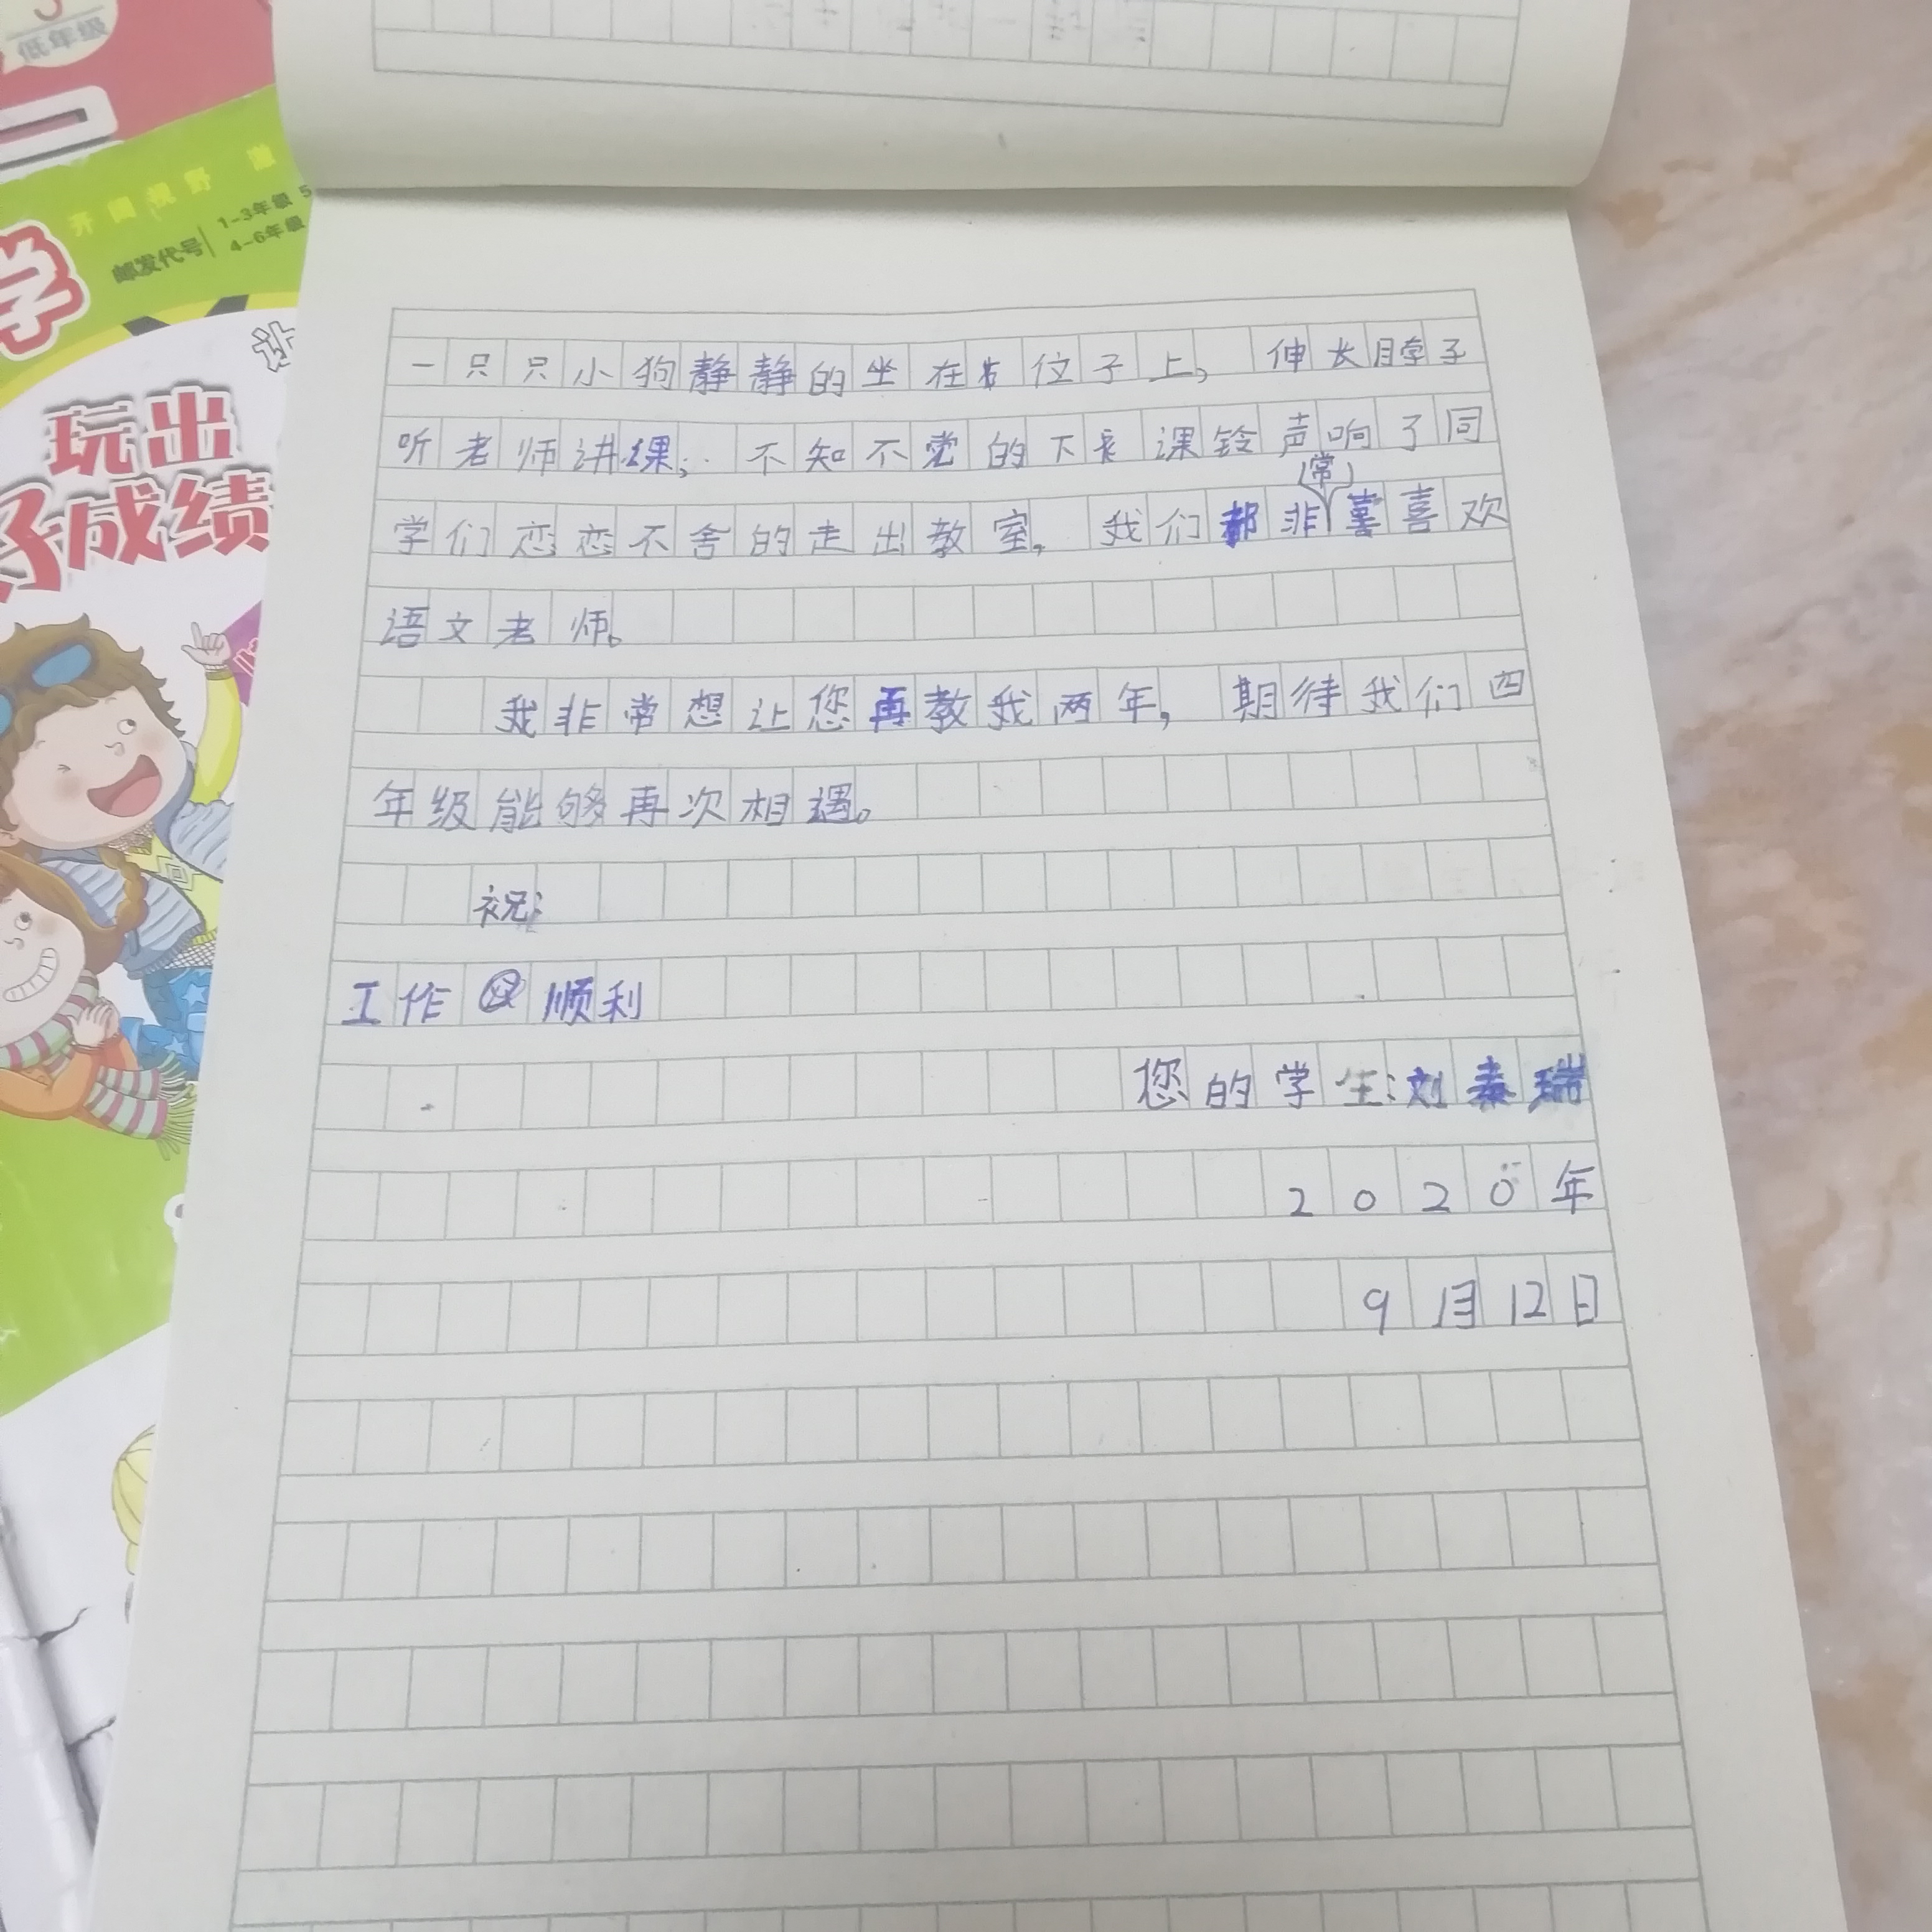 低年级
开阔视野
邮发代号
1-3年级 5
4-6年级
学
玩出
好成绩
一只只小狗静静的坐在位子上，伸长脖子
听老师讲课，不知不觉的下课铃声响了同
学们恋恋不舍的走出教室。我们都非(常)喜欢
语文老师。
我非常想让您再教我两年，期待我们四
年级能够再次相遇。
祝：
工作顺利
您的学生：刘秦瑞
2020年
9月12日